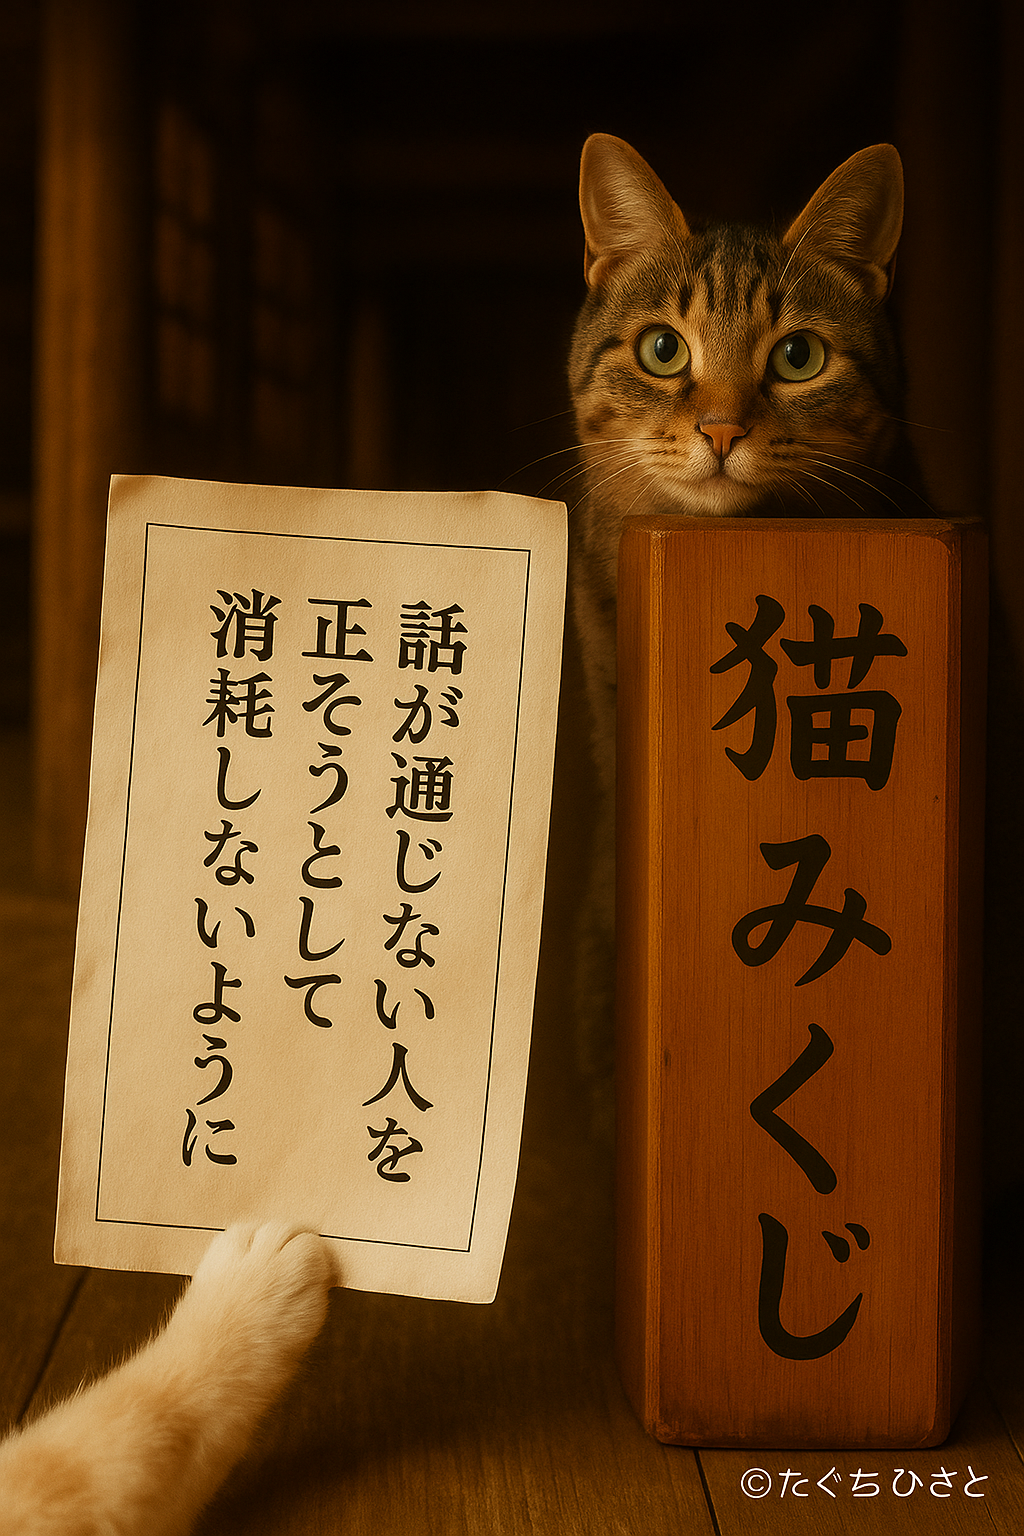 話が通じない人を
正そうとして
消耗しないように
猫みくじ
©たぐちひさと